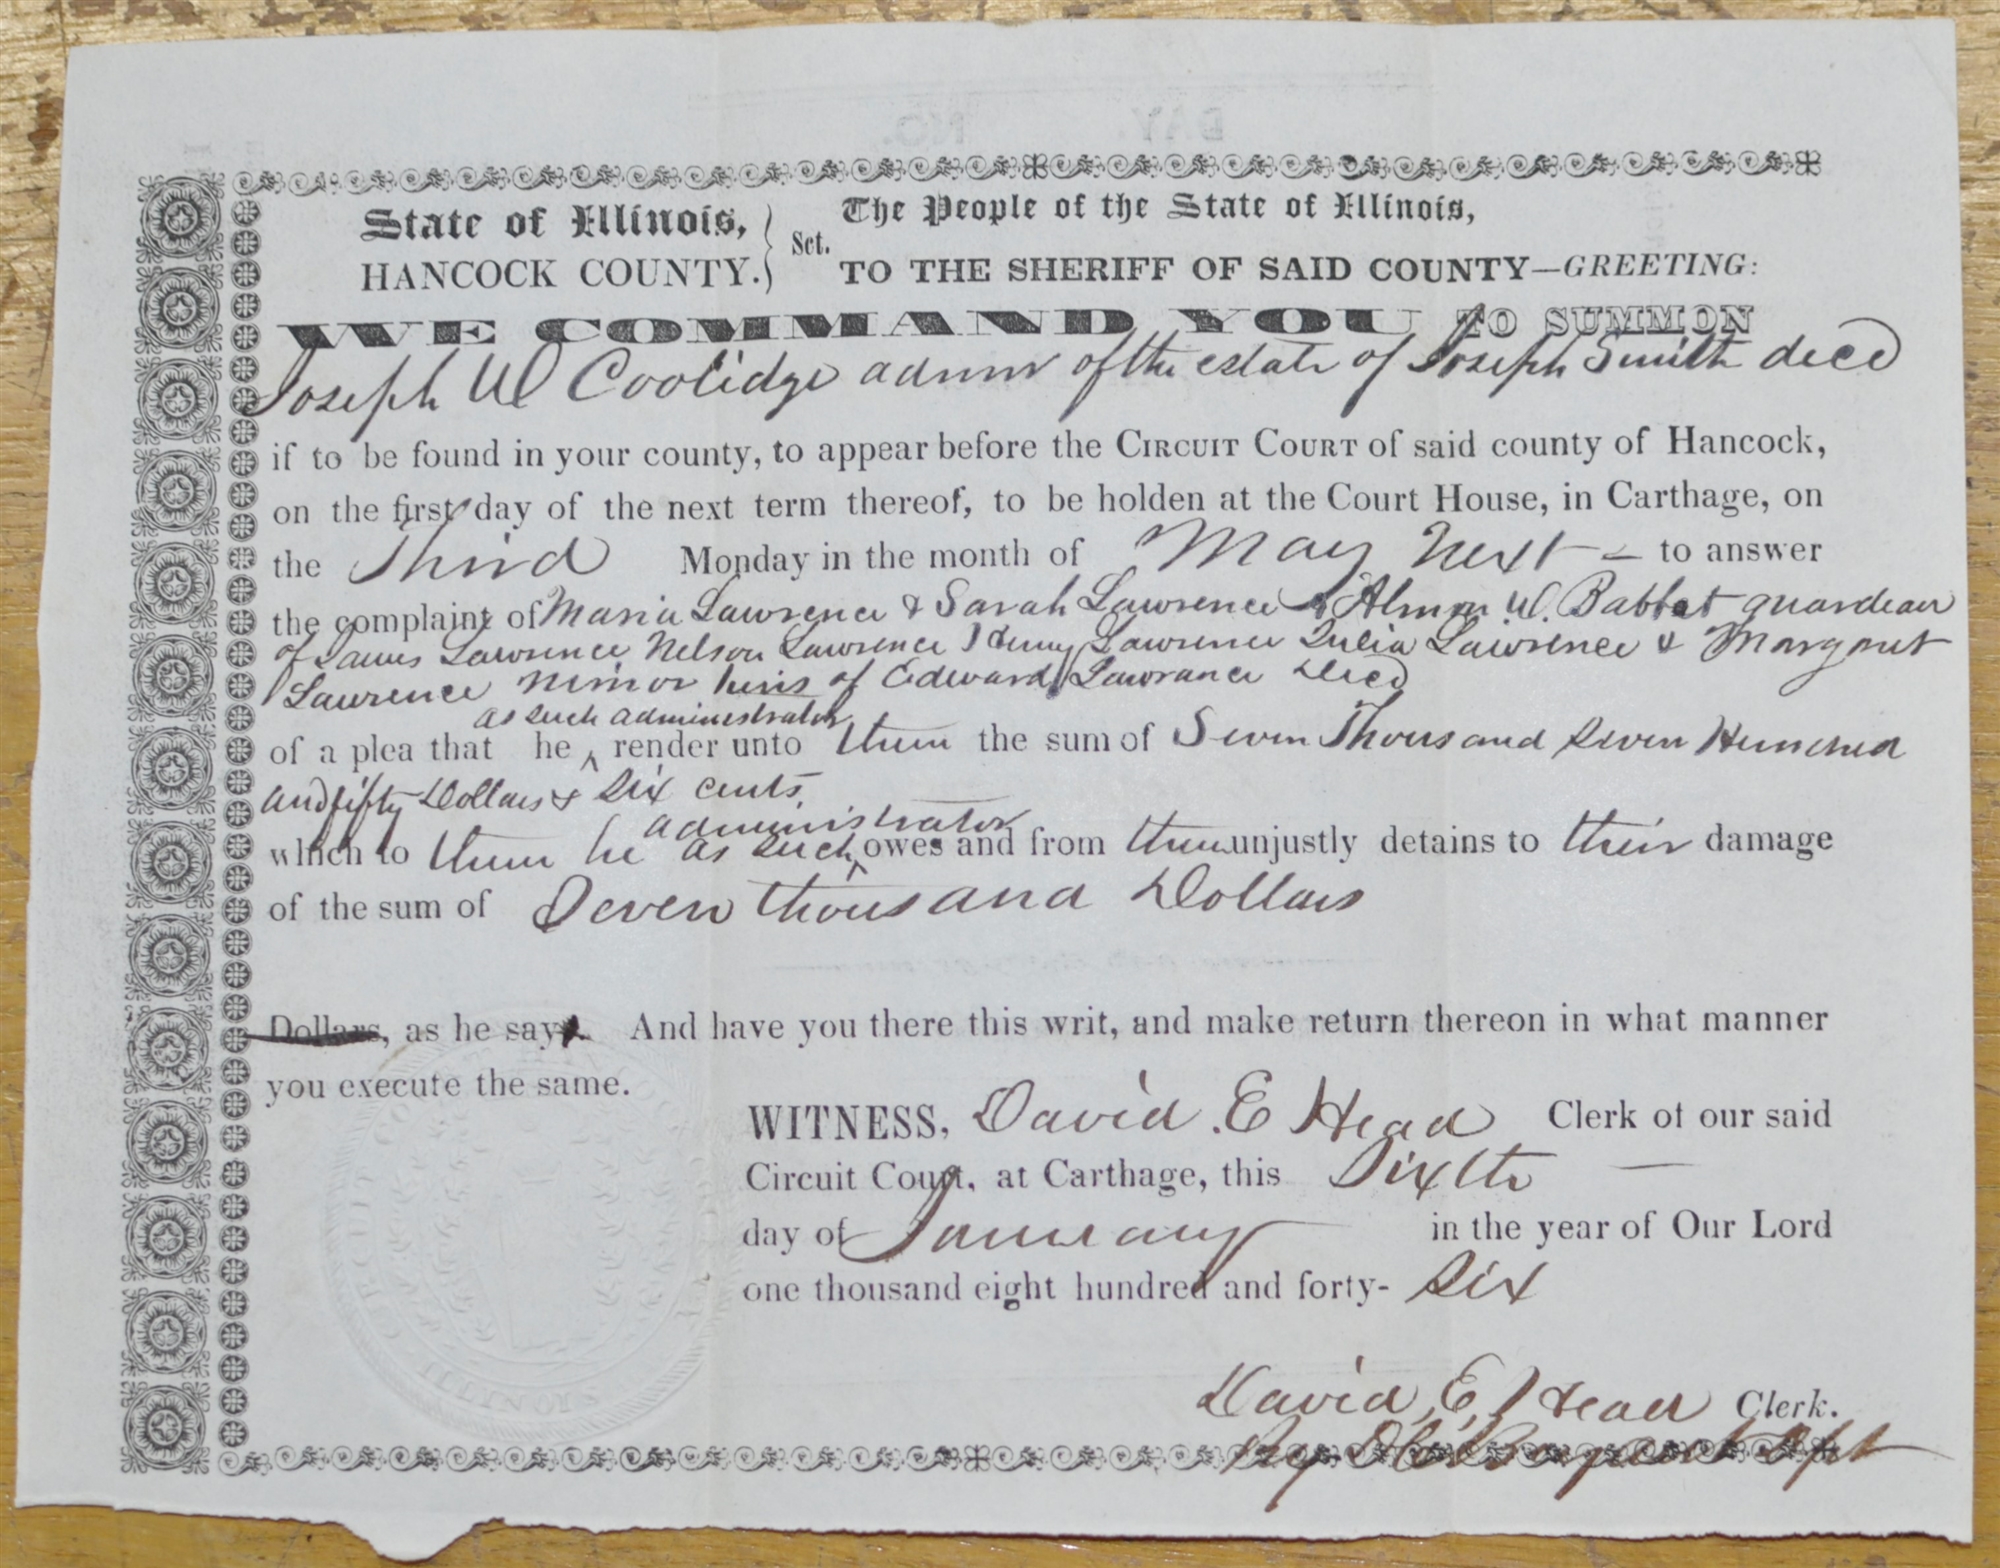 State of Illinois, } Sct. The People of the State of Illinois,
HANCOCK COUNTY. } TO THE SHERIFF OF SAID COUNTY—GREETING:
WE COMMAND YOU TO SUMMON
Joseph W Coolidge admr of the estate of Joseph Smith decd
if to be found in your county, to appear before the CIRCUIT COURT of said county of Hancock,
on the first day of the next term thereof, to be holden at the Court House, in Carthage, on
the Third Monday in the month of May Next – to answer
the complaint of Maria Lawrence & Sarah Lawrence & Almon W. Babbet guardean
of James Lawrence Nelson Lawrence Henry Lawrence Julia Lawrence & Margaret
Lawrence minor heirs of Edward Lawrance Decd
as such administrator
of a plea that he ^ render unto them the sum of Seven Thousand seven Hundred
and fifty Dollars & six cents
administrator
which to them he as such ^ owes and from them unjustly detains to their damage
of the sum of Seven thousand Dollars
Dollars, as he say. And have you there this writ, and make return thereon in what manner
you execute the same.
WITNESS, David E Head Clerk of our said
Circuit Court, at Carthage, this Sixth
day of January in the year of Our Lord
one thousand eight hundred and forty- six
David E. Head Clerk.
By
DAY. NO.
CIRCUIT CO
ILLINOIS